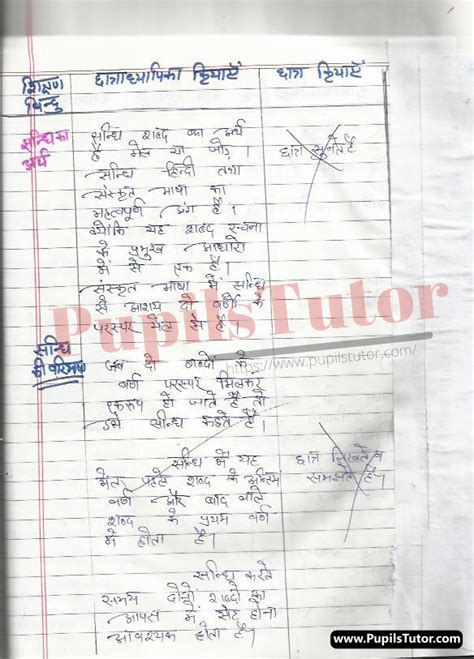 शिक्षण बिन्दु
छात्राध्यापिका क्रियाएँ
छात्र क्रियाएँ
सन्धि का अर्थ
सन्धि शब्द का अर्थ
है मेल या जोड़।
सन्धि हिन्दी तथा
संस्कृत भाषा का
महत्वपूर्ण अंग है।
क्योंकि यह शब्द रचना
के प्रमुख आधारो
में से एक है।
संस्कृत भाषा में सन्धि
से आशय दो वर्णो के
परस्पर मेल से है।
छात्र सुनते है
PupilsTutor
https://www.pupilstutor.com/
सन्धि
की परिभाषा
जब दो शब्दो के
वर्ण परस्पर मिलकर
एकरूप हो जाते है तो
उसे सन्धि कहते है।
सन्धि में यह
मेल पहले शब्द के अन्तिम
वर्ण और बाद वाले
शब्द के प्रथम वर्ण
में होता है।
छात्र लिखते व
समझते है।
सन्धि करते
समय दोनो शब्दो का
आपस में सेट होना
आवश्यक होता है।
www.PupilsTutor.com